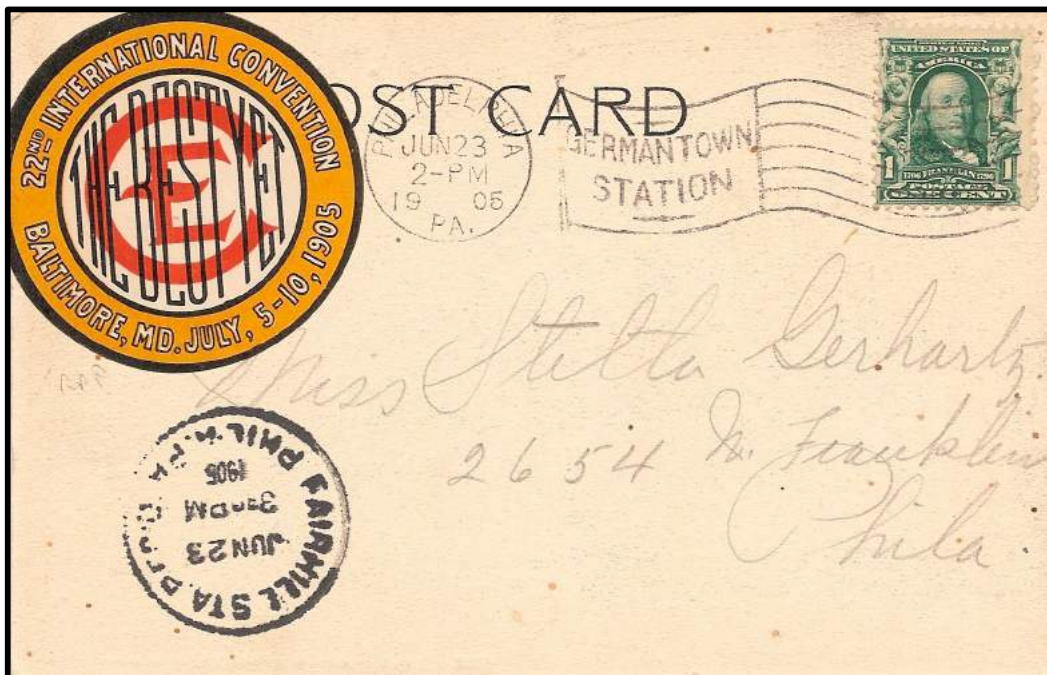 22ND INTERNATIONAL CONVENTION
THE BEST YET
CE
BALTIMORE, MD. JULY, 5-10, 1905
OST CARD
PHILADELPHIA
JUN 23
2-PM
19 05
PA.
GERMANTOWN
STATION
UNITED STATES OF
AMERICA
1 1706 FRANKLIN 1790 1
POSTAGE
ONE CENT
Miss Stella Gerhartz
2654 N. Franklin
Phila
FAIRHILL STA. PHIL'A. PA.
JUN 23
PM
1905